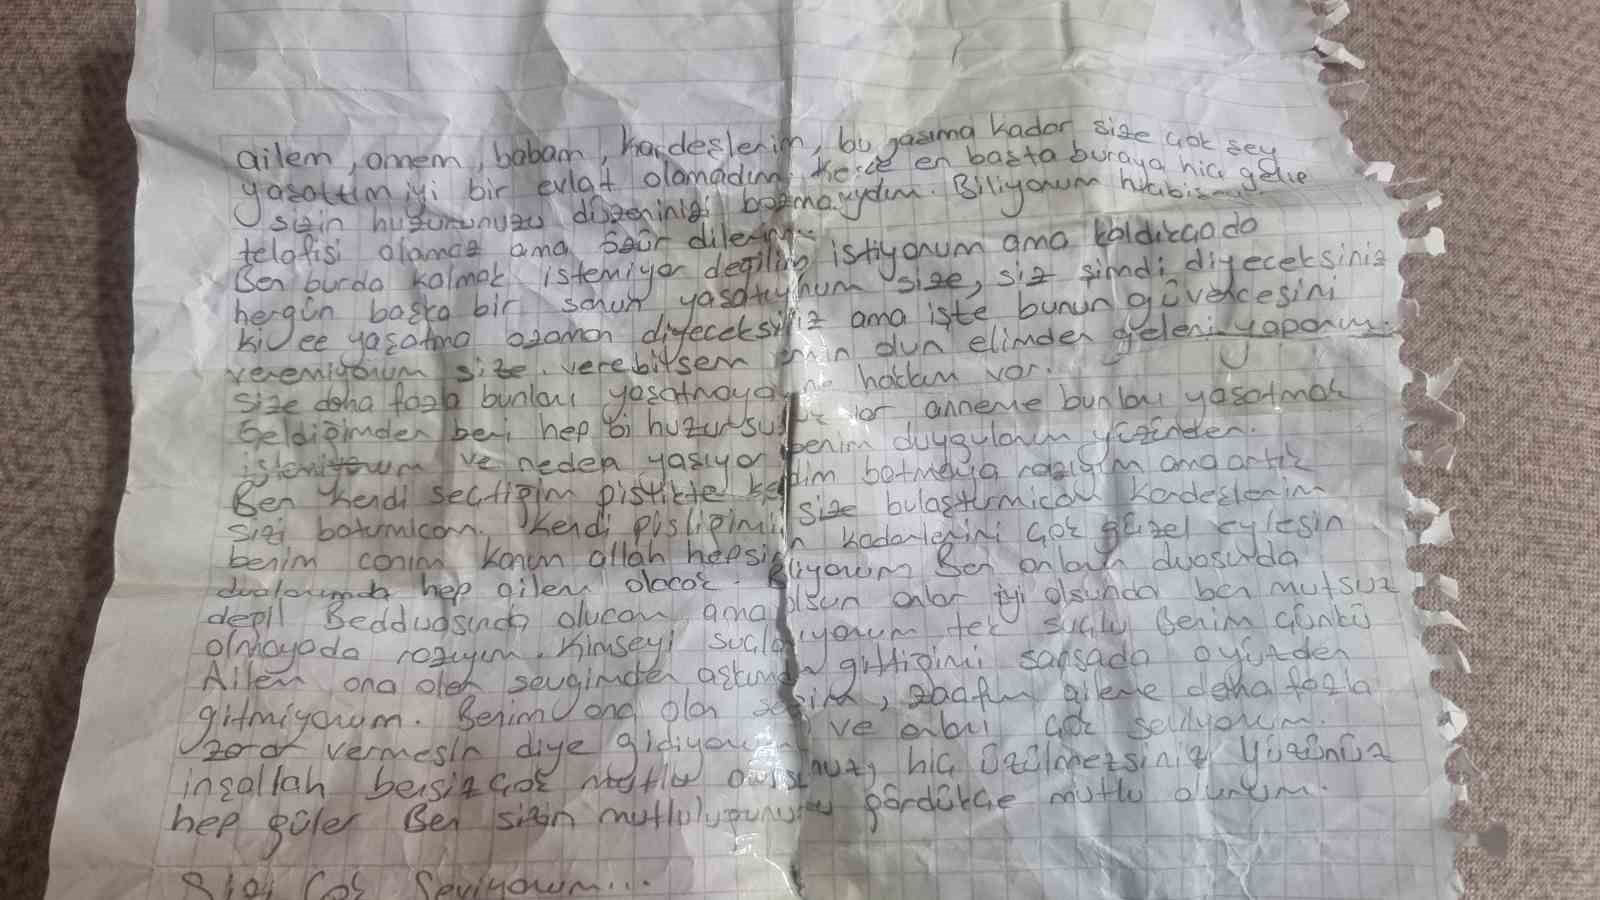 ailem, annem, babam, kardeşlerim, bu yaşıma kadar size çok şey
yaşattım iyi bir evlat olamadım. keşke en başta buraya hiç gelip
sizin huzurunuzu düzeninizi bozmasaydım. Biliyorum hiçbişeyi
telafisi olamaz ama özür dilerim...
Ben burda kalmak istemiyor değilim istiyorum ama kaldıkçada
hergün başka bir sorun yaşatıyorum size, siz şimdi diyeceksiniz
ki ee yaşatma ozaman diyeceksiniz ama işte bunun güvencesini
veremiyorum size. verebilsem emin olun elimden geleni yaparım.
size daha fazla bunları yaşatmaya hakkım var.
Geldiğimden beri hep bi huzursuzluk var anneme bunları yaşatmak
istemiyorum ve neden yaşıyor benim duygularım yüzünden.
Ben kendi seçtiğim pislikte kendim batmaya razıyım ama artık
sizi batırmıcam. Kendi pisliğimi size bulaştırmıcam kardeşlerim
benim canım kanım allah hepsinin kaderlerini çok güzel eylesin
dualarımda hep ailem olacak. Biliyorum Ben onların duasında
değil Bedduasında olucam ama olsun onlar iyi olsunda ben mutsuz
olmayada razıyım. Kimseyi suçlamıyorum tek suçlu Benim çünkü
Ailem ona olan sevgimden aşkımdan gittiğimi sansada o yüzden
gitmiyorum. Benim ona olan zaafım aileme daha fazla
zarar vermesin diye gidiyorum ve onları çok seviyorum.
inşallah bensiz çok mutlu olursunuz, hiç üzülmezsiniz Yüzünüz
hep güler Ben sizin mutluluğunuzu gördükçe mutlu olurum.
Sizi Çok Seviyorum...